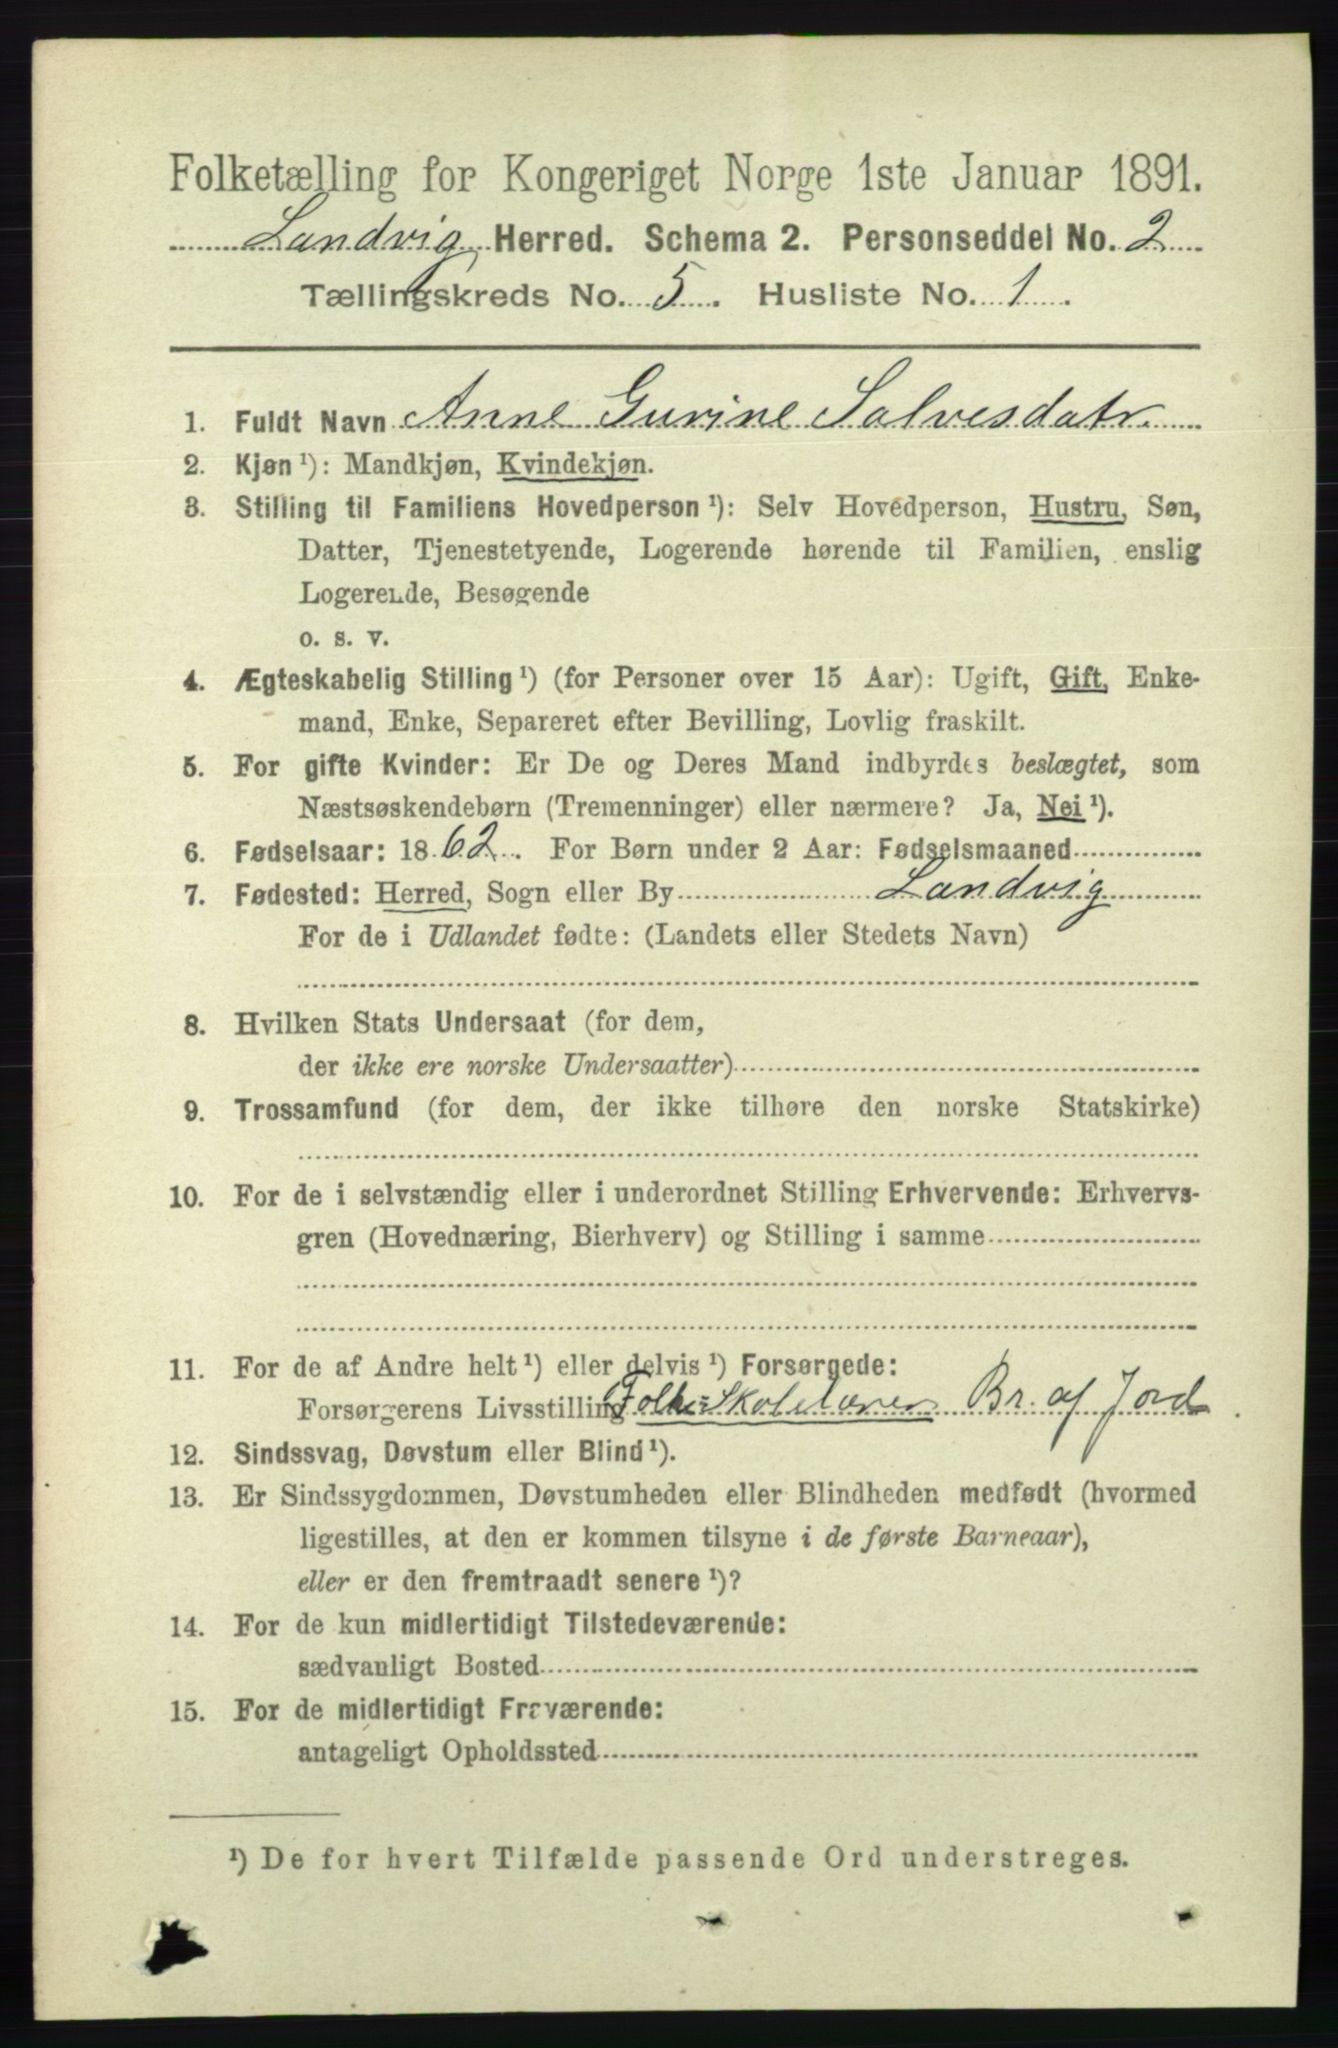 Folketælling for Kongeriget Norge 1ste Januar 1891.
Landvig Herred. Schema 2. Personseddel No. 2
Tællingskreds No. 5. Husliste No. 1.
1. Fuldt Navn Anne Gurine Salvesdatr.
2. Kjøn ¹): Mandkjøn, Kvindekjøn.
3. Stilling til Familiens Hovedperson ¹): Selv Hovedperson, Hustru, Søn,
Datter, Tjenestetyende, Logerende hørende til Familien, enslig
Logerende, Besøgende
o. s. v.
4. Ægteskabelig Stilling ¹) (for Personer over 15 Aar): Ugift, Gift, Enke-
mand, Enke, Separeret efter Bevilling, Lovlig fraskilt.
5. For gifte Kvinder: Er De og Deres Mand indbyrdes beslægtet, som
Næstsøskendebørn (Tremenninger) eller nærmere? Ja, Nei ¹).
6. Fødselsaar: 1862. For Børn under 2 Aar: Fødselsmaaned
7. Fødested: Herred, Sogn eller By Landvig
For de i Udlandet fødte: (Landets eller Stedets Navn)
8. Hvilken Stats Undersaat (for dem,
der ikke ere norske Undersaatter)
9. Trossamfund (for dem, der ikke tilhøre den norske Statskirke)
10. For de i selvstændig eller i underordnet Stilling Erhvervende: Erhvervs-
gren (Hovednæring, Bierhverv) og Stilling i samme
11. For de af Andre helt ¹) eller delvis ¹) Forsørgede:
Forsørgerens Livsstilling Folke=Skolelærer Br. af Jord.
12. Sindssvag, Døvstum eller Blind ¹).
13. Er Sindssygdommen, Døvstumheden eller Blindheden medfødt (hvormed
ligestilles, at den er kommen tilsyne i de første Barneaar),
eller er den fremtraadt senere ¹)?
14. For de kun midlertidigt Tilstedeværende:
sædvanligt Bosted
15. For de midlertidigt Fraværende:
antageligt Opholdssted
¹) De for hvert Tilfælde passende Ord understreges.